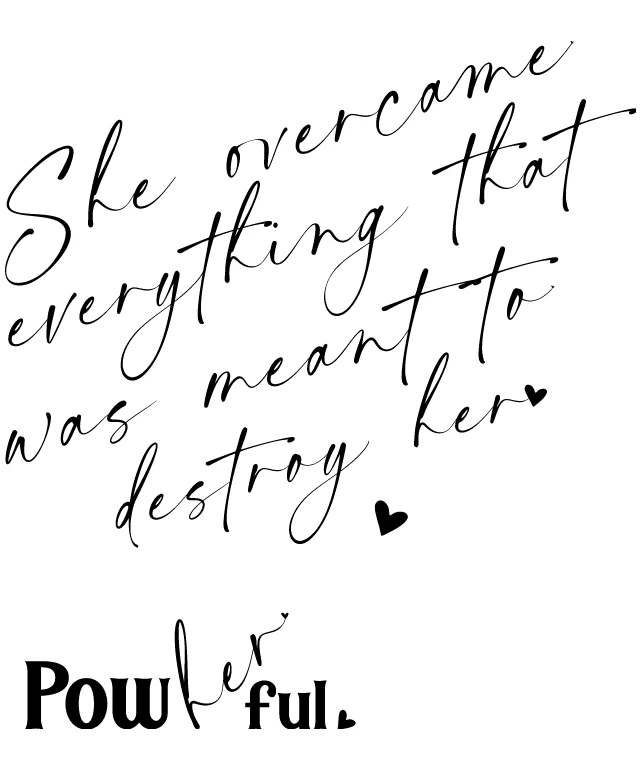 She overcame
everything that
was meant to
destroy her
Powherful